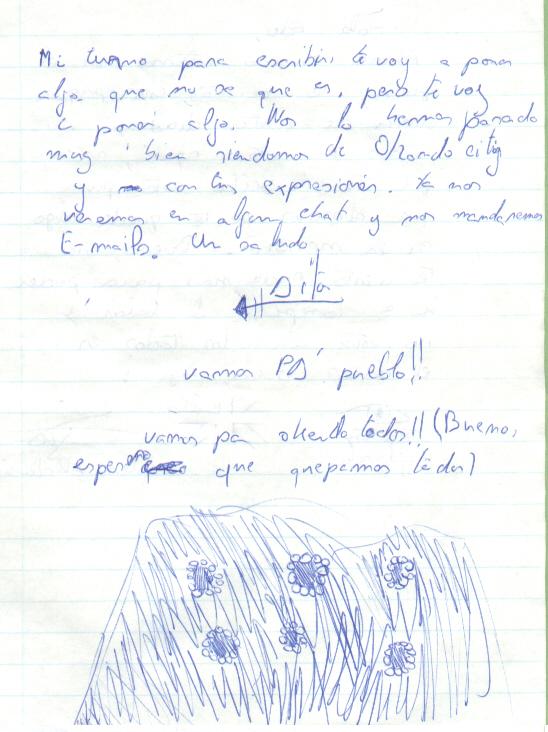 Mi turno para escribir, te voy a poner
algo que no se que es, pero te voy
a poner algo. Nos lo hemos pasado
muy bien riendonos de
y con tus expresiones. Ya nos
veremos en algun chat y nos mandaremos
E-mails. Un saludo
vamos PA' pueblo!!
vamos pa todos!! (Bueno,
espero que quepamos todos)